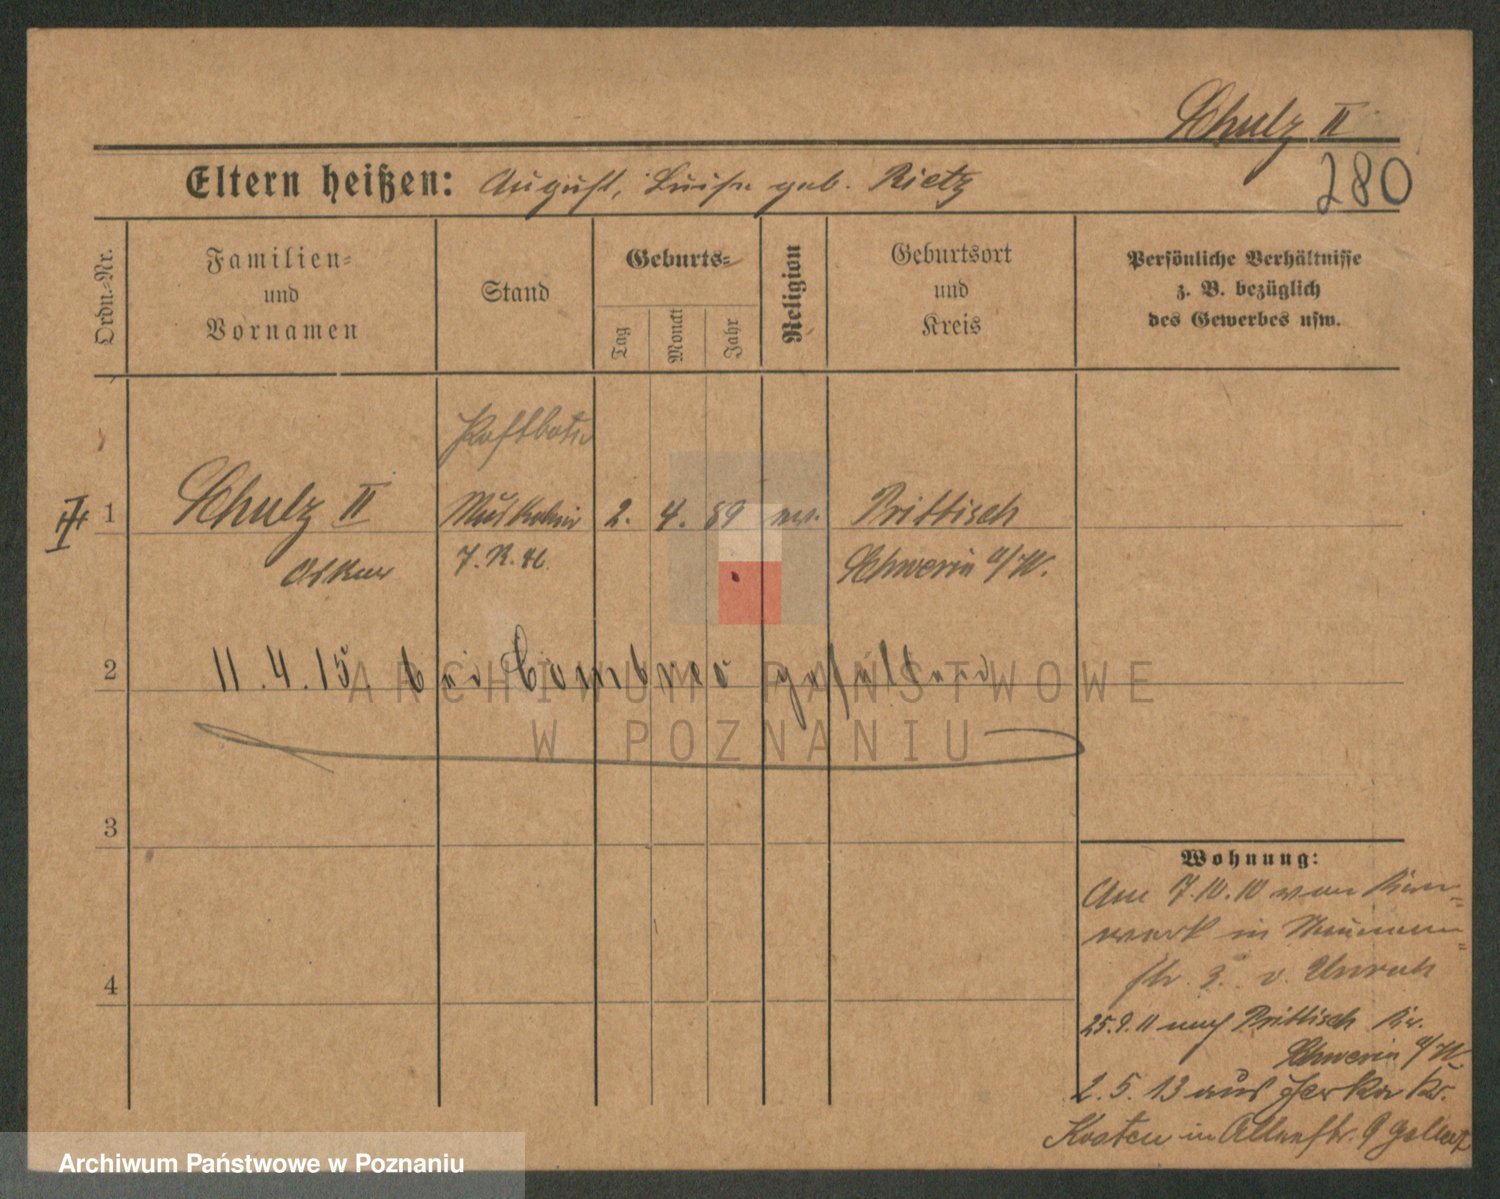 Schulz II
280
Eltern heißen: August, Luise geb. Rietz
Ordn.-Nr.
Familien-
und
Vornamen
Stand
Geburts-
Tag
Monat
Jahr
Religion
Geburtsort
und
Kreis
Persönliche Verhältnisse
z. B. bezüglich
des Gewerbes usw.
1 Schulz II Musketier 2. 4. 89 ev. Prittisch
Oskar Schwerin a/W.
2 11.4.15 bei Combres gefallen
3
4
Wohnung:
Am 7.10.10 von
in
str. 3. v. Unruh
25.9.11 nach Prittisch Kr.
Schwerin a/W.
2.5.13 aus Jerka Kr.
Kosten in
ARCHIWUM PAŃSTWOWE
W POZNANIU
Archiwum Państwowe w Poznaniu